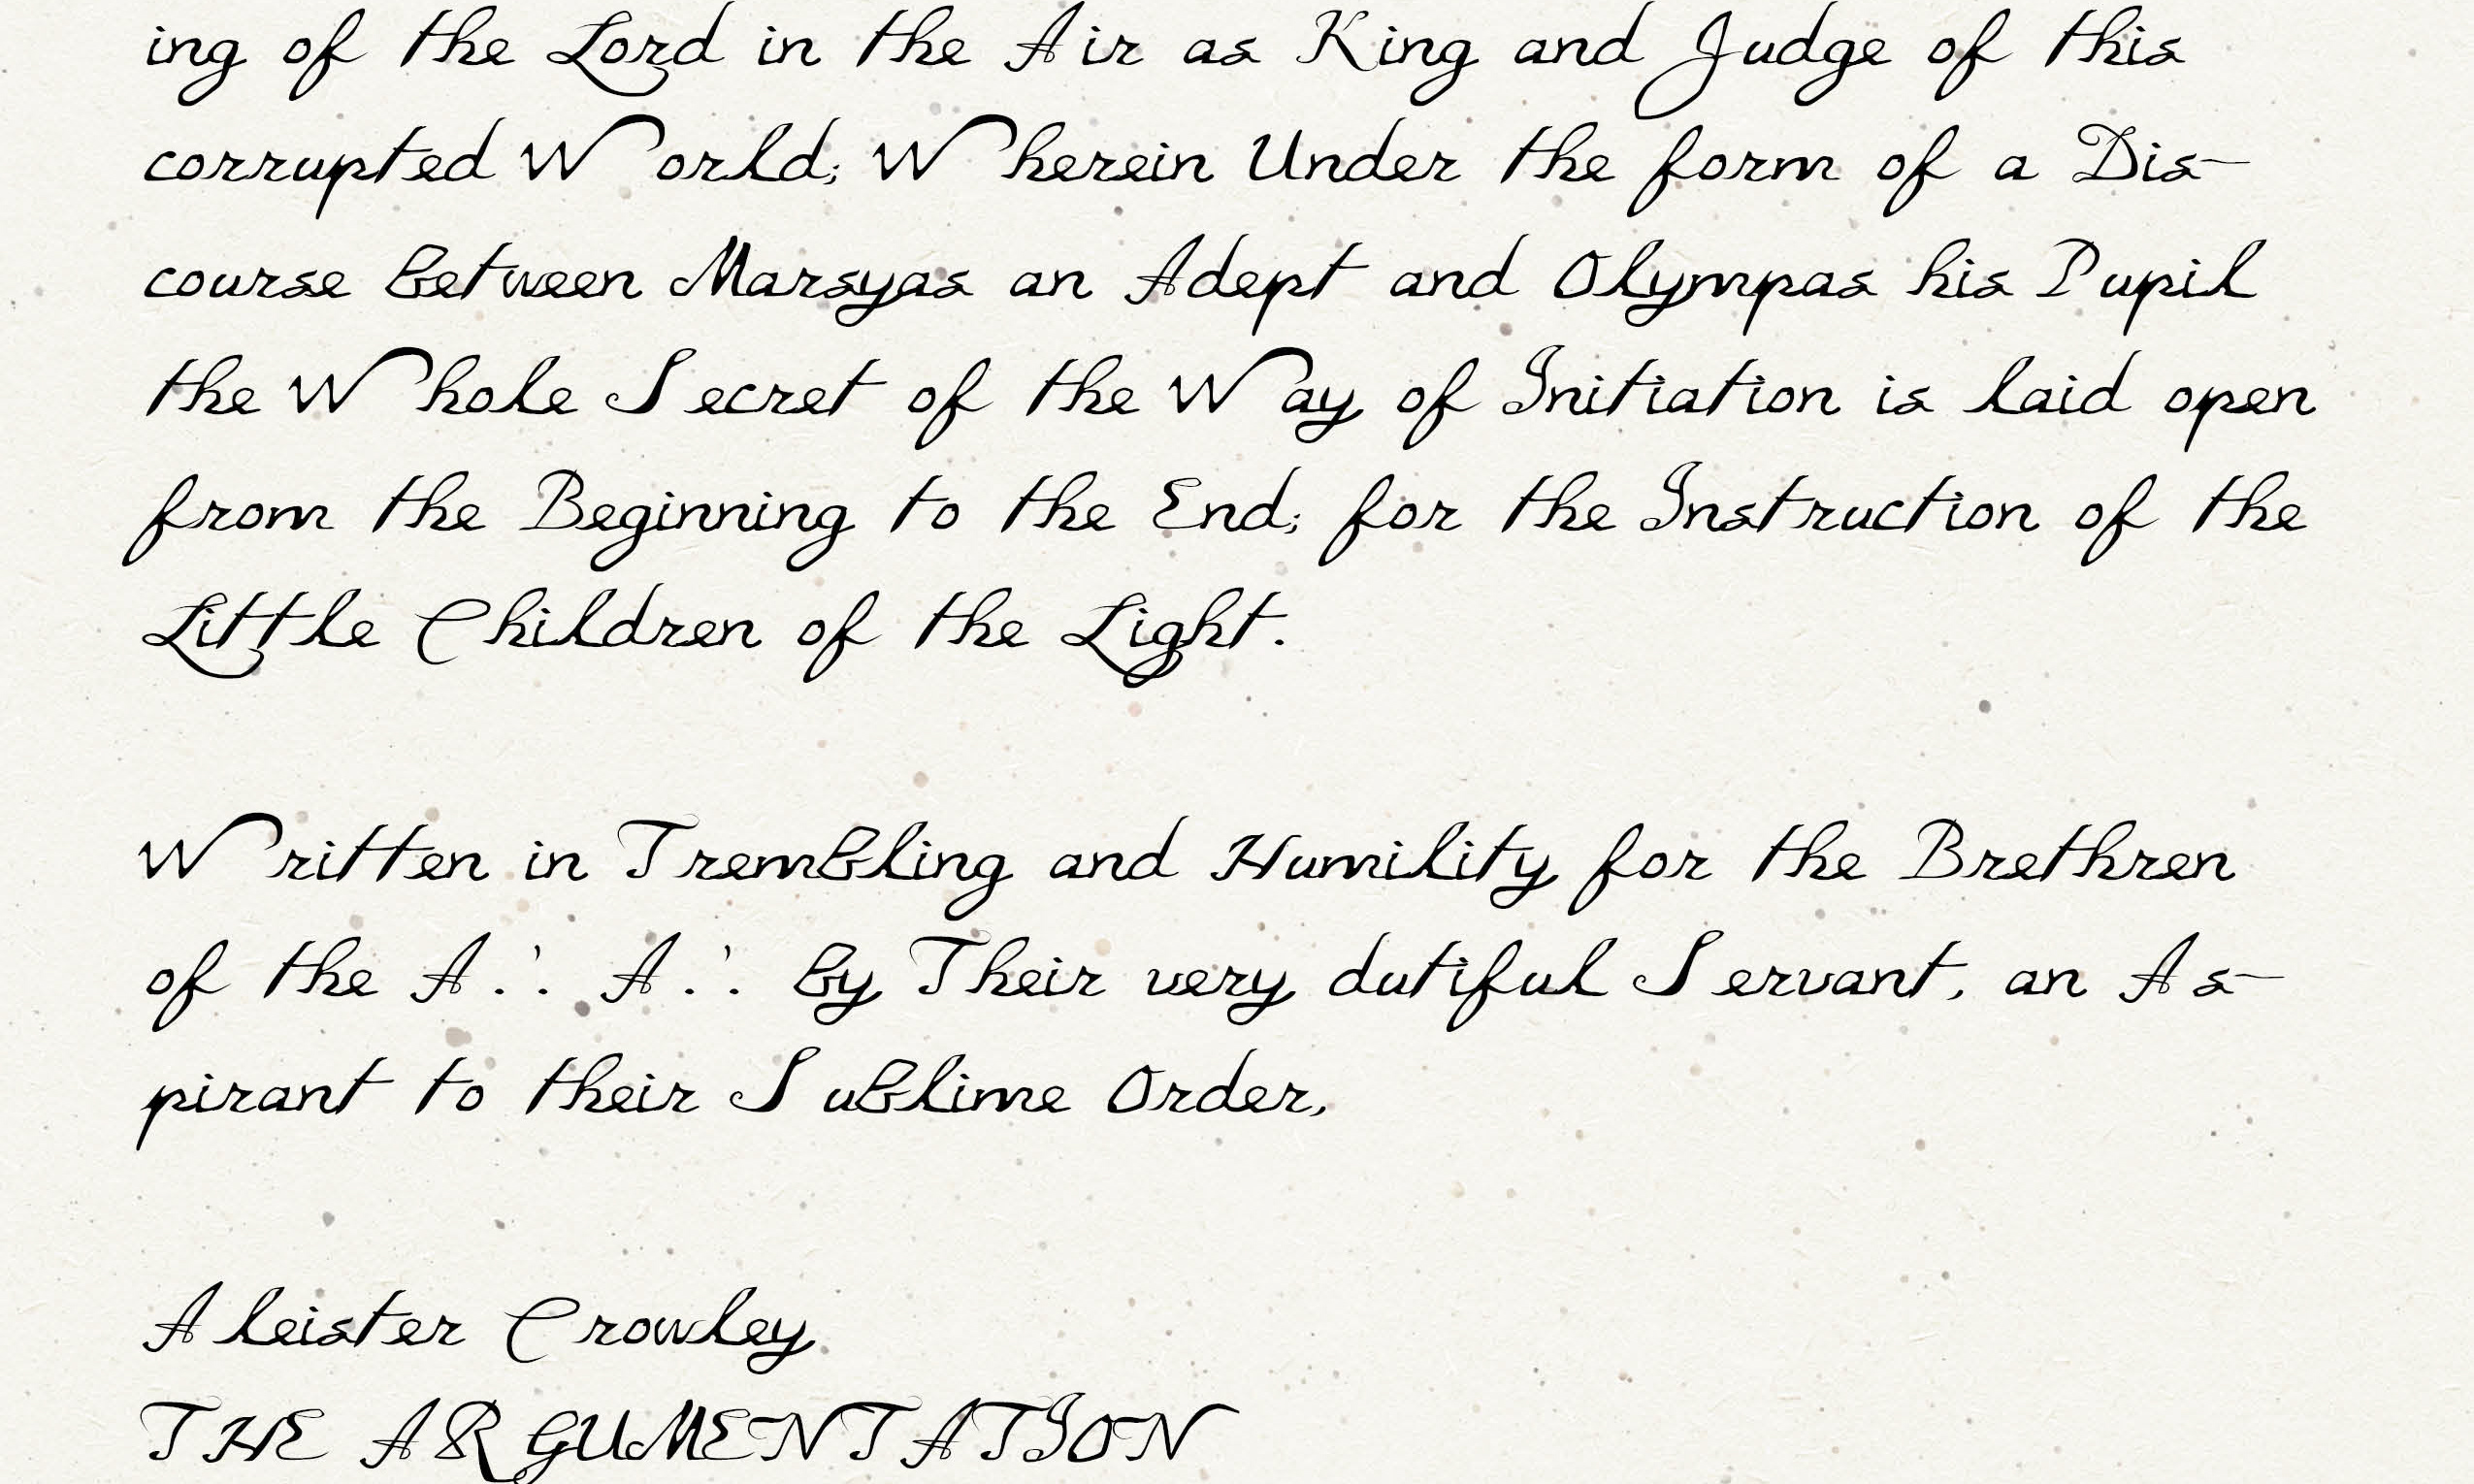 ing of the Lord in the Air as King and Judge of this
corrupted World; Wherein Under the form of a Dis-
course between Marsyas an Adept and Olympas his Pupil
the Whole Secret of the Way of Initiation is laid open
from the Beginning to the End; for the Instruction of the
Little Children of the Light.
Written in Trembling and Humility for the Brethren
of the A.'. A.'. by Their very dutiful Servant, an As-
pirant to their Sublime Order,
Aleister Crowley
THE ARGUMENTATION